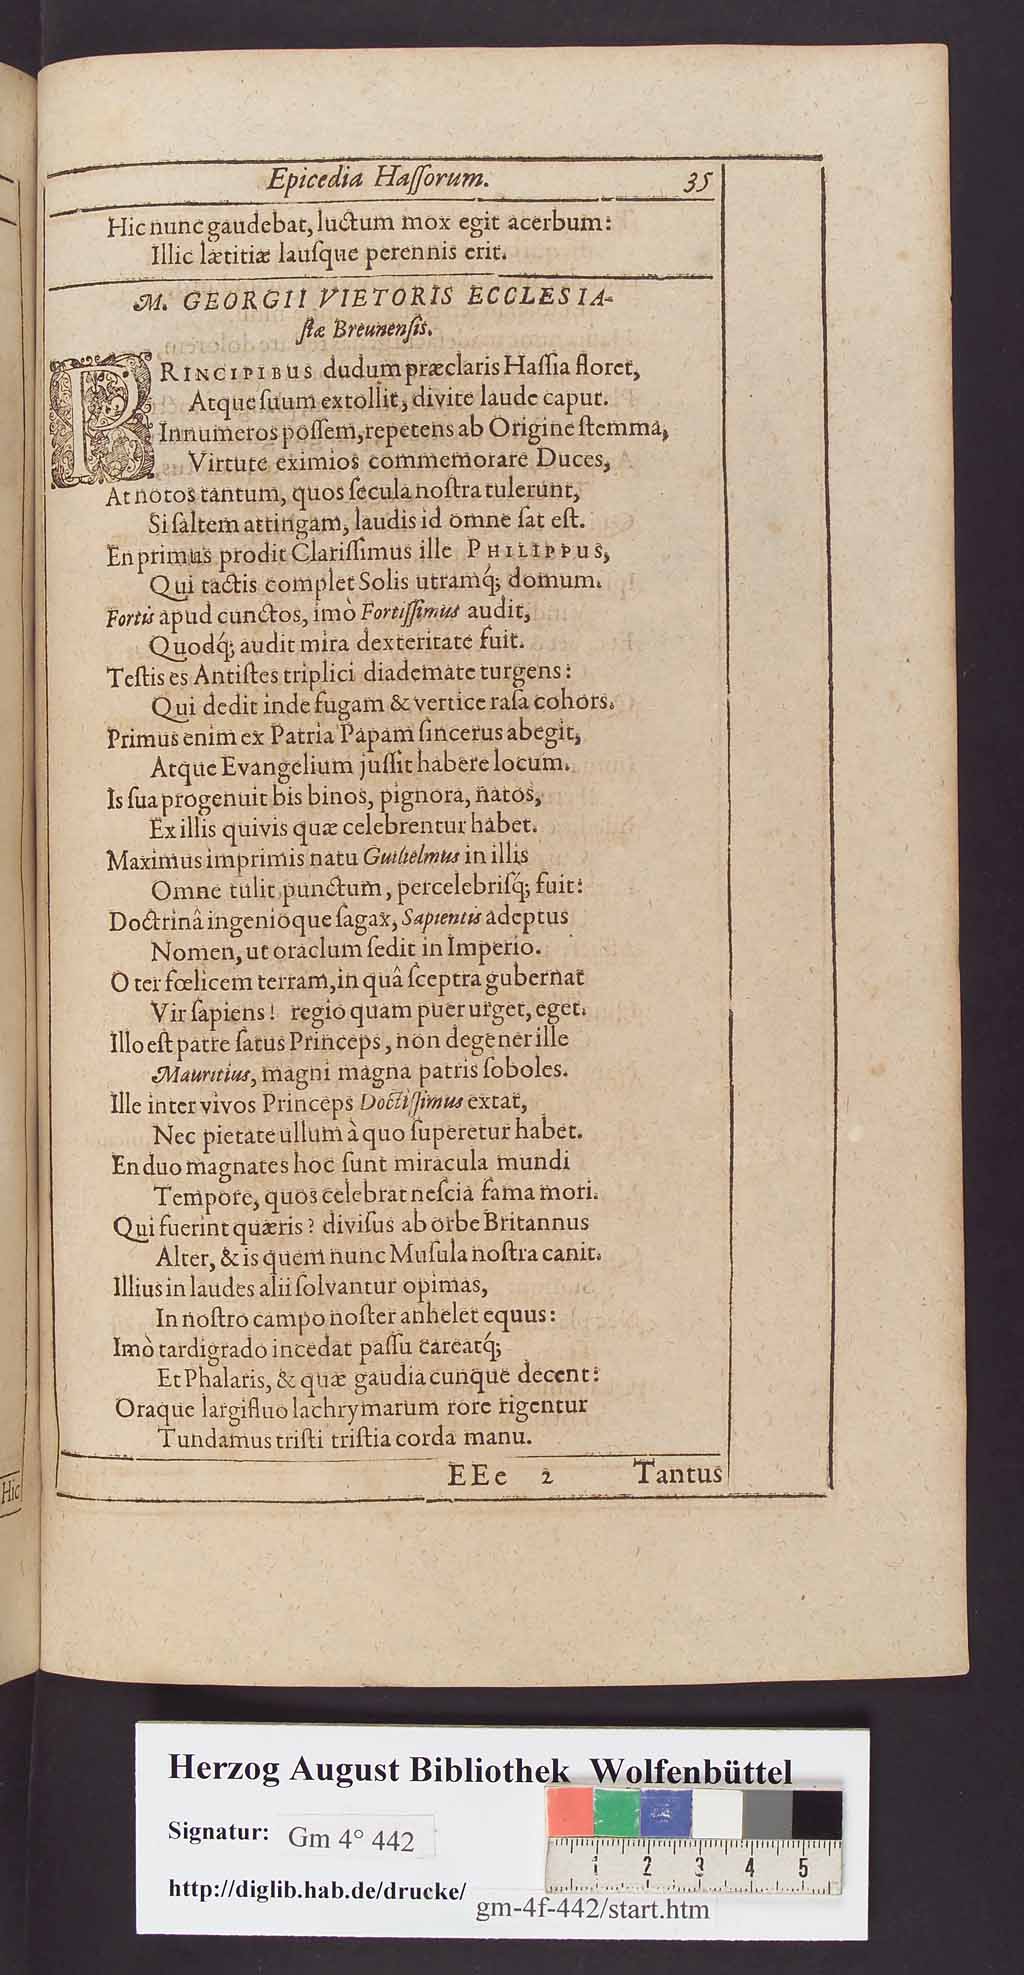 Epicedia Haſſorum. 35
Hic nunc gaudebat, luctum mox egit acerbum:
Illic lætitiæ lauſque perennis erit.
M. GEORGII VIETORIS ECCLESIA-
ſtæ Breunenſis.
PRINCIPIBUS dudum præclaris Haſſia floret,
Atque ſuum extollit, divite laude caput.
Innumeros poſſem, repetens ab Origine ſtemma,
Virtute eximios commemorare Duces,
At notos tantum, quos ſecula noſtra tulerunt,
Si ſaltem attingam, laudis id omne ſat eſt.
En primus prodit Clariſſimus ille PHILIPPUS,
Qui tactis complet Solis utramq́; domum.
Fortis apud cunctos, imò Fortiſſimus audit,
Quodq́; audit mira dexteritate fuit.
Teſtis es Antiſtes triplici diademate turgens:
Qui dedit inde fugam & vertice raſa cohors.
Primus enim ex Patria Papam ſincerus abegit,
Atque Evangelium juſſit habere locum.
Is ſua progenuit bis binos, pignora, natos,
Ex illis quivis quæ celebrentur habet.
Maximus imprimis natu Guilielmus in illis
Omne tulit punctum, percelebriſq́; fuit:
Doctrinâ ingenioque ſagax, Sapientis adeptus
Nomen, ut oraclum ſedit in Imperio.
O ter fœlicem terram, in quâ ſceptra gubernat
Vir ſapiens! regio quam puer urget, eget.
Illo eſt patre ſatus Princeps, non degener ille
Mauritius, magni magna patris ſoboles.
Ille inter vivos Princeps Doctiſſimus extat,
Nec pietate ullum à quo ſuperetur habet.
En duo magnates hoc ſunt miracula mundi
Tempore, quos celebrat neſcia fama mori.
Qui fuerint quæris? diviſus ab orbe Britannus
Alter, & is quem nunc Muſula noſtra canit.
Illius in laudes alii ſolvantur opimas,
In noſtro campo noſter anhelet equus:
Imò tardigrado incedat paſſu careatq́;
Et Phalaris, & quæ gaudia cunque decent:
Oraque largifluo lachrymarum rore rigentur
Tundamus triſti triſtia corda manu.
EEe 2 Tantus
Hic
Herzog August Bibliothek Wolfenbüttel
Signatur: Gm 4° 442
http://diglib.hab.de/drucke/
gm-4f-442/start.htm
1 2 3 4 5